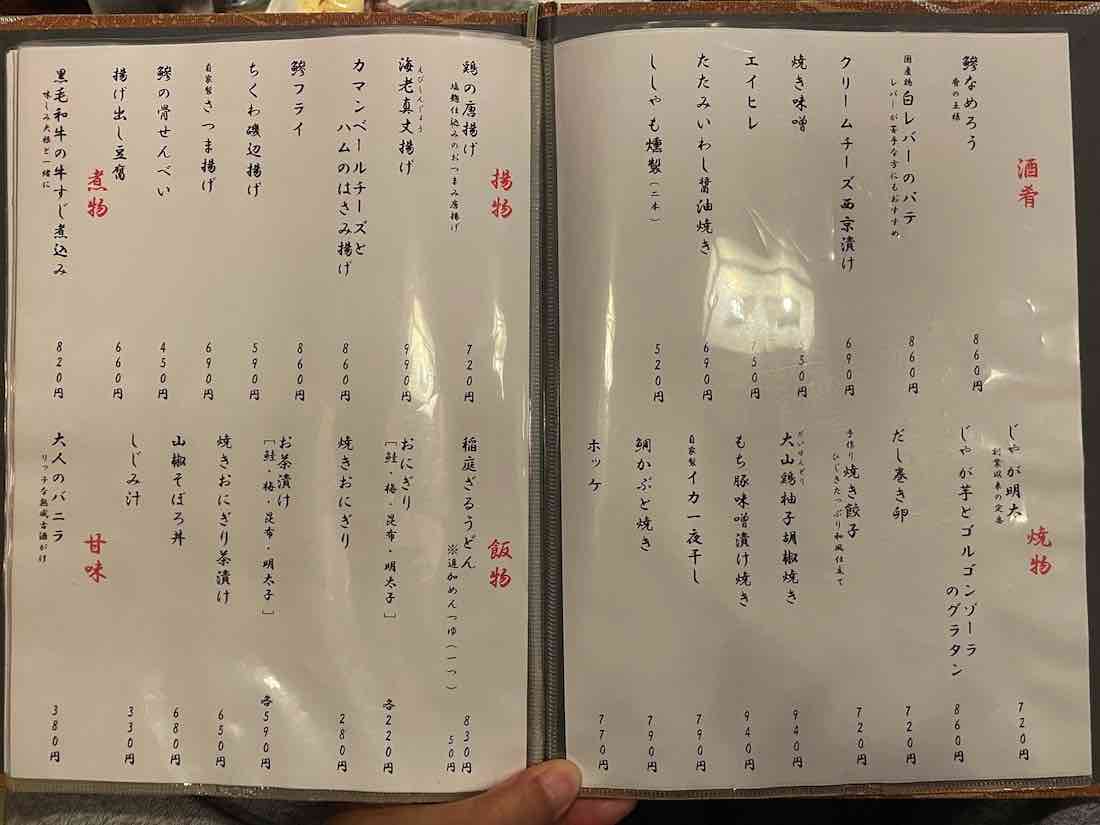 酒肴
鯵なめろう
肴の王様
860円
国産鶏白レバーのパテ
レバーが苦手な方にもおすすめ
860円
クリームチーズ西京漬け
690円
焼き味噌
エイヒレ
たたみいわし醤油焼き
690円
ししゃも燻製(二本)
520円
焼物
じゃが明太
創業以来の定番
720円
じゃが芋とゴルゴンゾーラ
のグラタン
860円
だし巻き卵
720円
手作り焼き餃子
ひじきたっぷり和風仕立て
720円
だいせんどり
大山鶏柚子胡椒焼き
940円
もち豚味噌漬け焼き
940円
自家製イカ一夜干し
790円
鯛かぶと焼き
790円
ホッケ
770円
揚物
鶏の唐揚げ
塩麹仕込みのおつまみ唐揚げ
720円
えびしんじょう
海老真丈揚げ
990円
カマンベールチーズと
ハムのはさみ揚げ
860円
鯵フライ
860円
ちくわ磯辺揚げ
590円
自家製さつま揚げ
690円
鯵の骨せんべい
450円
揚げ出し豆腐
660円
煮物
黒毛和牛の牛すじ煮込み
味しみ大根と一緒に
820円
飯物
稲庭ざるうどん
830円
※追加めんつゆ(一つ)
50円
おにぎり
[鮭・梅・昆布・明太子]
各220円
焼きおにぎり
280円
お茶漬け
[鮭・梅・昆布・明太子]
各590円
焼きおにぎり茶漬け
650円
山椒そぼろ丼
680円
しじみ汁
330円
甘味
大人のバニラ
リッチな熟成古酒がけ
380円